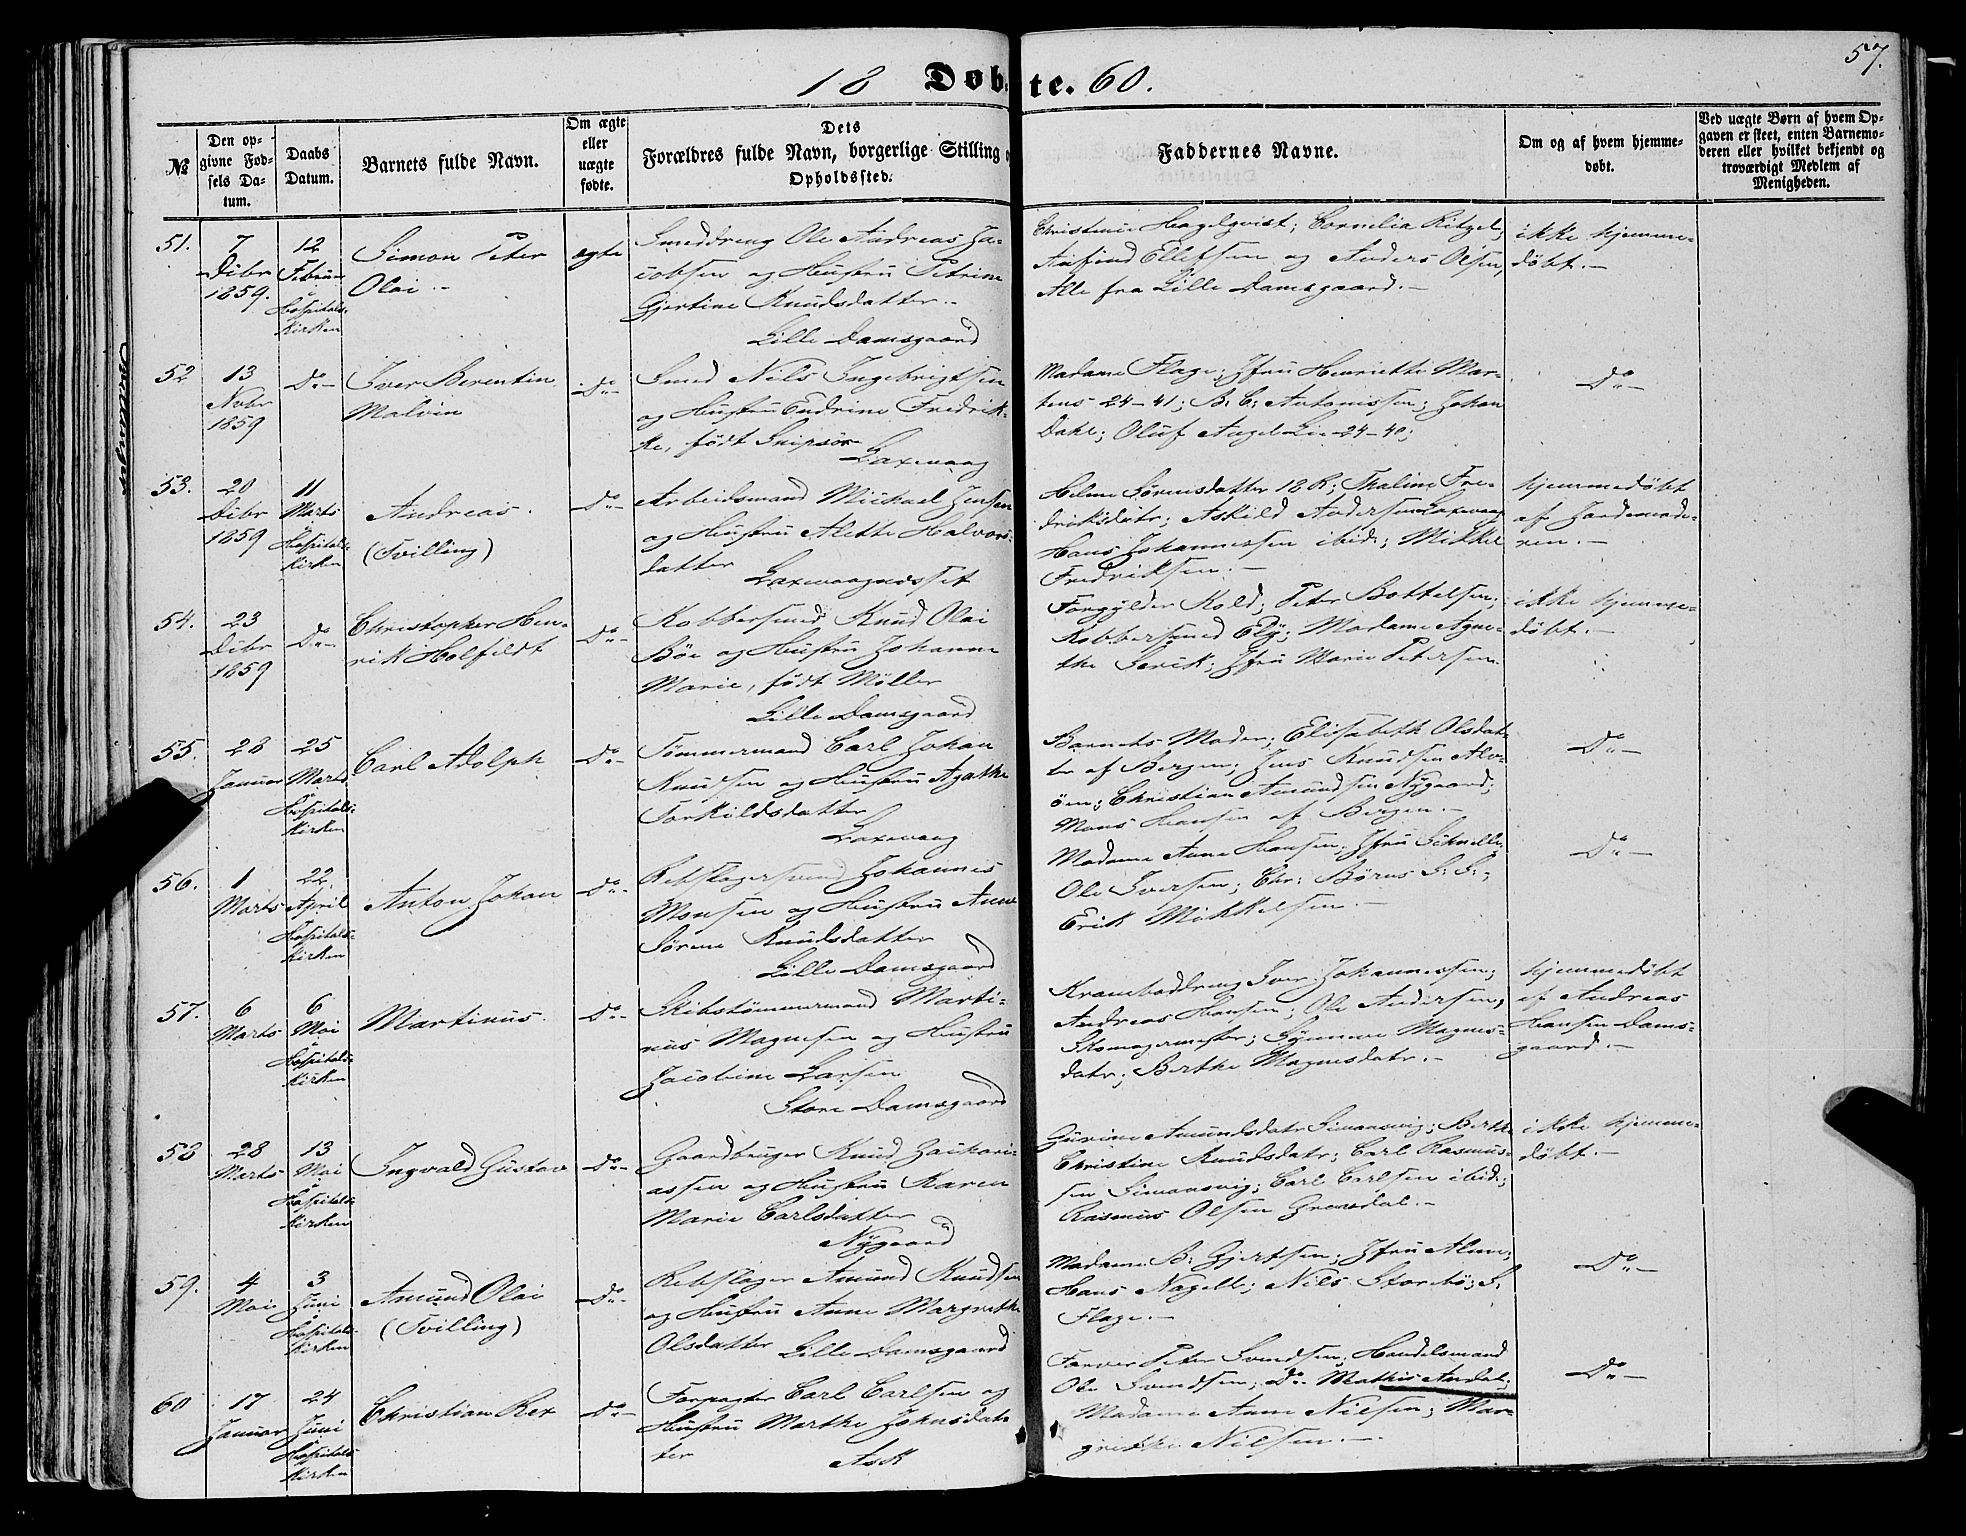 57.
18 Døbte. 60.
№
Den opgivne Fødsels Datum.
Daabs Datum.
Barnets fulde Navn.
Om ægte eller uægte fødte.
Dets
Forældres fulde Navn, borgerlige Stilling o
Opholdssted.
Faddernes Navne.
Om og af hvem hjemmedøbt.
Ved uægte Børn af hvem Opgaven er skeet, enten Barnemoderen eller hvilket bekjendt og troværdigt Medlem af Menigheden.
51.
7
Dcbr
1859.
12
Februar
i
Hospitals-
kirken
Simon Peter
Olai.-
ægte
Smeddreng Ole Andreas Ja-
cobsen og Hustru Petrine
Gjertine Knudsdatter.-
Lille Damsgaard
Christine Hagelqvist; Cornelia Ritzel;
Anfind Ellefsen og Anders Olsen,
Alle fra Lille Damsgaard.-
ikke hjemme-
døbt.-
52
13
Nvbr
1859
Do-
Iver Berentin
Malvin
Do-
Smed Nils Ingebrigtsen
og Hustru Endrine Fredrik-
ke, født Snipsør
Laxevaag
Madame Flage; Jfru Henriette Mar-
tens 24-41; B. C. Antonissen; Johan
Dahl; Oluf Angel Lie 24-40;
Do-
53.
20
Dcbr
1859
11
Marts
i
Hospitals-
kirken
Andreas.
(Tvilling)
Do-
Arbeidsmand Mickael Jensen
og Hustru Alette Halvors-
datter
Laxevaagnesset
Helene Sørensdatter 18 R; Maline Fre-
driksdatr; Askild Andersen Laxevaag
Hans Johannessen ibid; Mikkel
Fredriksen.-
hjemmedøbt
af Jordemode-
ren.-
54.
23
Dcbr
1859
Do-
Christopher Hen-
rik Holfeldt
Do-
Kobbersmed Knud Olai
Böe og Hustru Johanne
Marie, født Møller
Lille Damsgaard
Forgylder Kold; Peter Bottolsen;
Kobbersmed Ely; Madame Agne-
the Serik; Jfru Marie Petersen.
ikke hjemme-
døbt.-
55.
28
Januar
25
Marts
i
Hospitals-
kirken
Carl Adolph
Do-
Tømmermand Carl Johan
Knudsen og Hustru Agathe
Torkildsdatter
Laxevaag
Barnets Moder; Elisabeth Olsdat-
ter af Bergen; Jens Knudsen Alv-
øen; Christian Amundsen Nygaard;
Mons Hansen af Bergen.-
Do-
56.
1
Marts
22
April
Hospitals-
kirken
Anton Johan
Do-
Rebslagersvend Johannes
Monsen og Hustru Anne
Sørene Knudsdatter
Lille Damsgaard
Madame Anne Hansen; Jfru Schnelle;
Ole Iversen; Chr: Børns S. S.;
Erik Mikkelsen.-
Do-
57.
6
Marts
6
Mai
i
Hospitals-
kirken
Martinus.
Do-
Skibstømmermand Marti-
nus Magnesen og Hustru
Jacobine Larsen
Store Damsgaard
Kramboddreng Iver Johannessen;
Andreas Hansen; Ole Andersen,
Skomagermester; Synneve Magnes-
datr; Berthe Magnesdatr.-
hjemmedøbt
af Andreas
Hansen Dams-
gaard.-
58
28
Marts
13
Mai
i
Hospitals-
kirken
Ingvald Gustav
Do-
Gaardbruger Knud Zackari-
assen og Hustru Karen
Marie Carlsdatter
Nygaard
Gurine Amundsdatr Simonsvig; Berthe
Christine Knudsdatr; Carl Rasmus-
sen Simonsvig; Carl Carlsen ibid;
Rasmus Olsen Gravdal.-
ikke hjemme-
døbt.-
59.
4
Mai
3
Juni
Hospitals-
kirken
Amund Olai
(Tvilling)
Do-
Rebslager Amund Knudsen
og Hustru Anne Margrethe
Olsdatter
Lille Damsgaard
Madame B. Gjertsen; Jfru Alme;
Hans Nagell; Nils Storebø; S.
Flage.-
Do-
60
17
Januar
24
Juni
Hospitals-
kirken
Christian Rex
Do-
Forpagter Carl Carlsen og
Hustru Marthe Johnsdat-
ter
Ask
Farver Peter Svendsen; Handelsmand
Ole Svendsen; Do Mathis Andal;
Madame Anne Nielsen; Mar-
grethe Nielsen.-
Do-